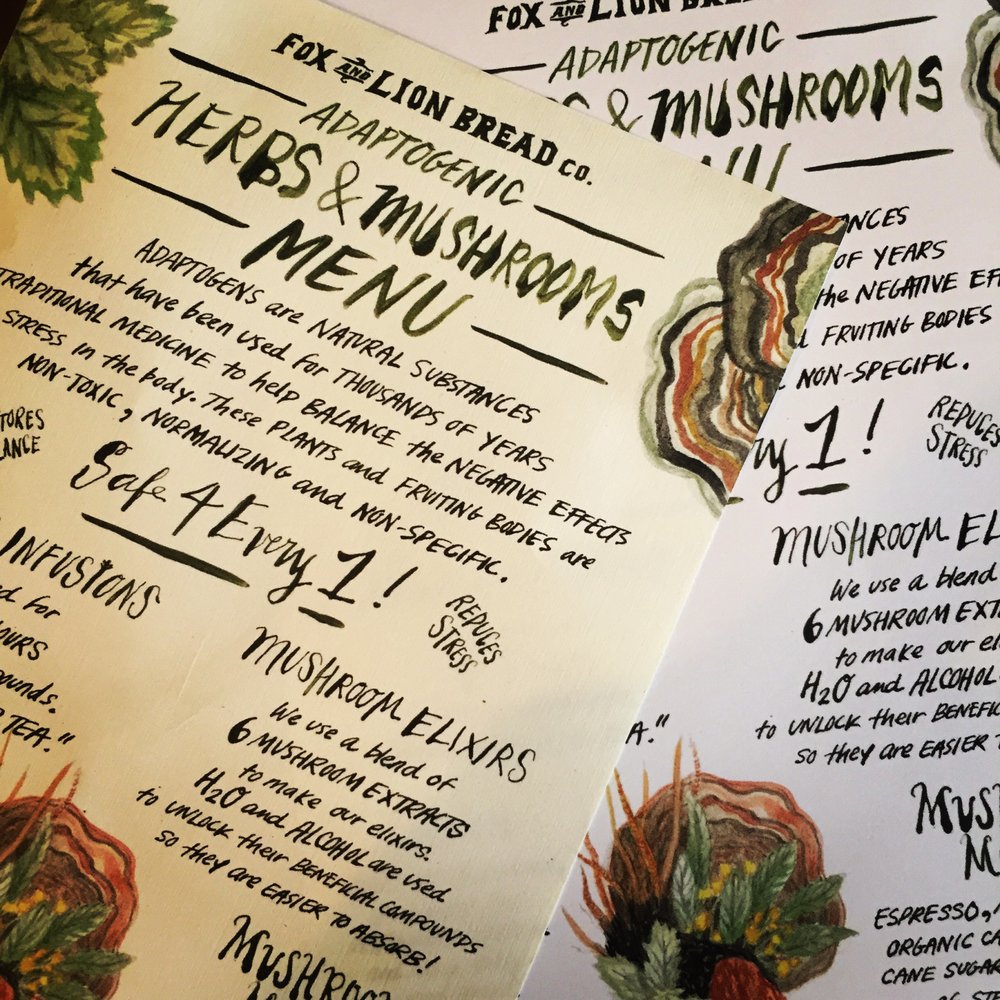 FOX AND LION BREAD CO.
ADAPTOGENIC
HERBS & MUSHROOMS
MENU
ADAPTOGENS are NATURAL SUBSTANCES
that have been used for THOUSANDS OF YEARS
TRADITIONAL MEDICINE to help BALANCE the NEGATIVE EFFECTS
STRESS in the body. These PLANTS and FRUITING BODIES are
NON-TOXIC, NORMALIZING and NON-SPECIFIC.
Safe 4 Every 1!
REDUCES
STRESS
INFUSIONS
for
HOURS
TEA."
MUSHROOM ELIXIRS
We use a blend of
6 MUSHROOM EXTRACTS
to make our elixirs.
H2O and ALCOHOL are used
to UNLOCK their BENEFICIAL COMPOUNDS
so they are EASIER TO ABSORB!
MUSHROOM
FOX AND LION BREAD
ADAPTOGENIC
& MUSHROOMS
OF YEARS
the NEGATIVE
FRUITING BODIES
NON-SPECIFIC.
1!
REDUCES
STRESS
MUSHROOM
We use a blend
6 MUSHROOM
to make our
H2O and ALCOHOL
to UNLOCK their
so they are EASIER
ESPRESSO,
ORGANIC
CANE SUGAR